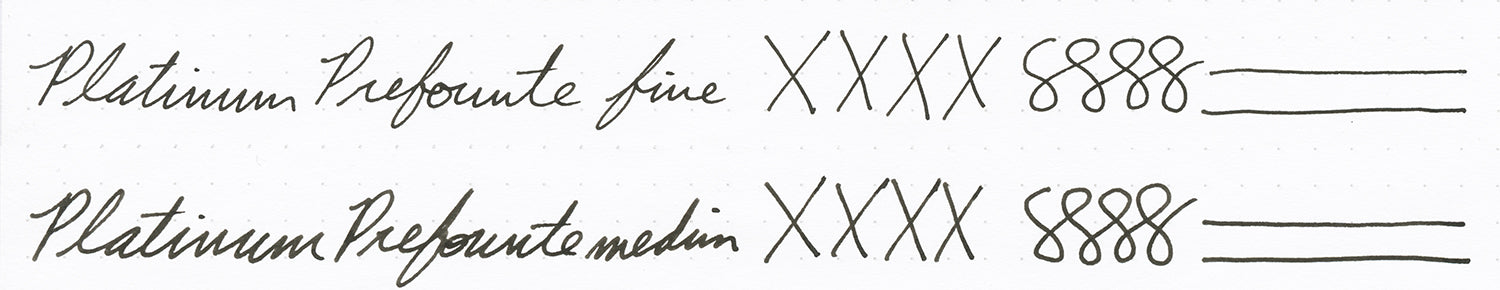 Platinum Prefounte fine XXXX 8888
Platinum Prefounte medium XXXX 8888